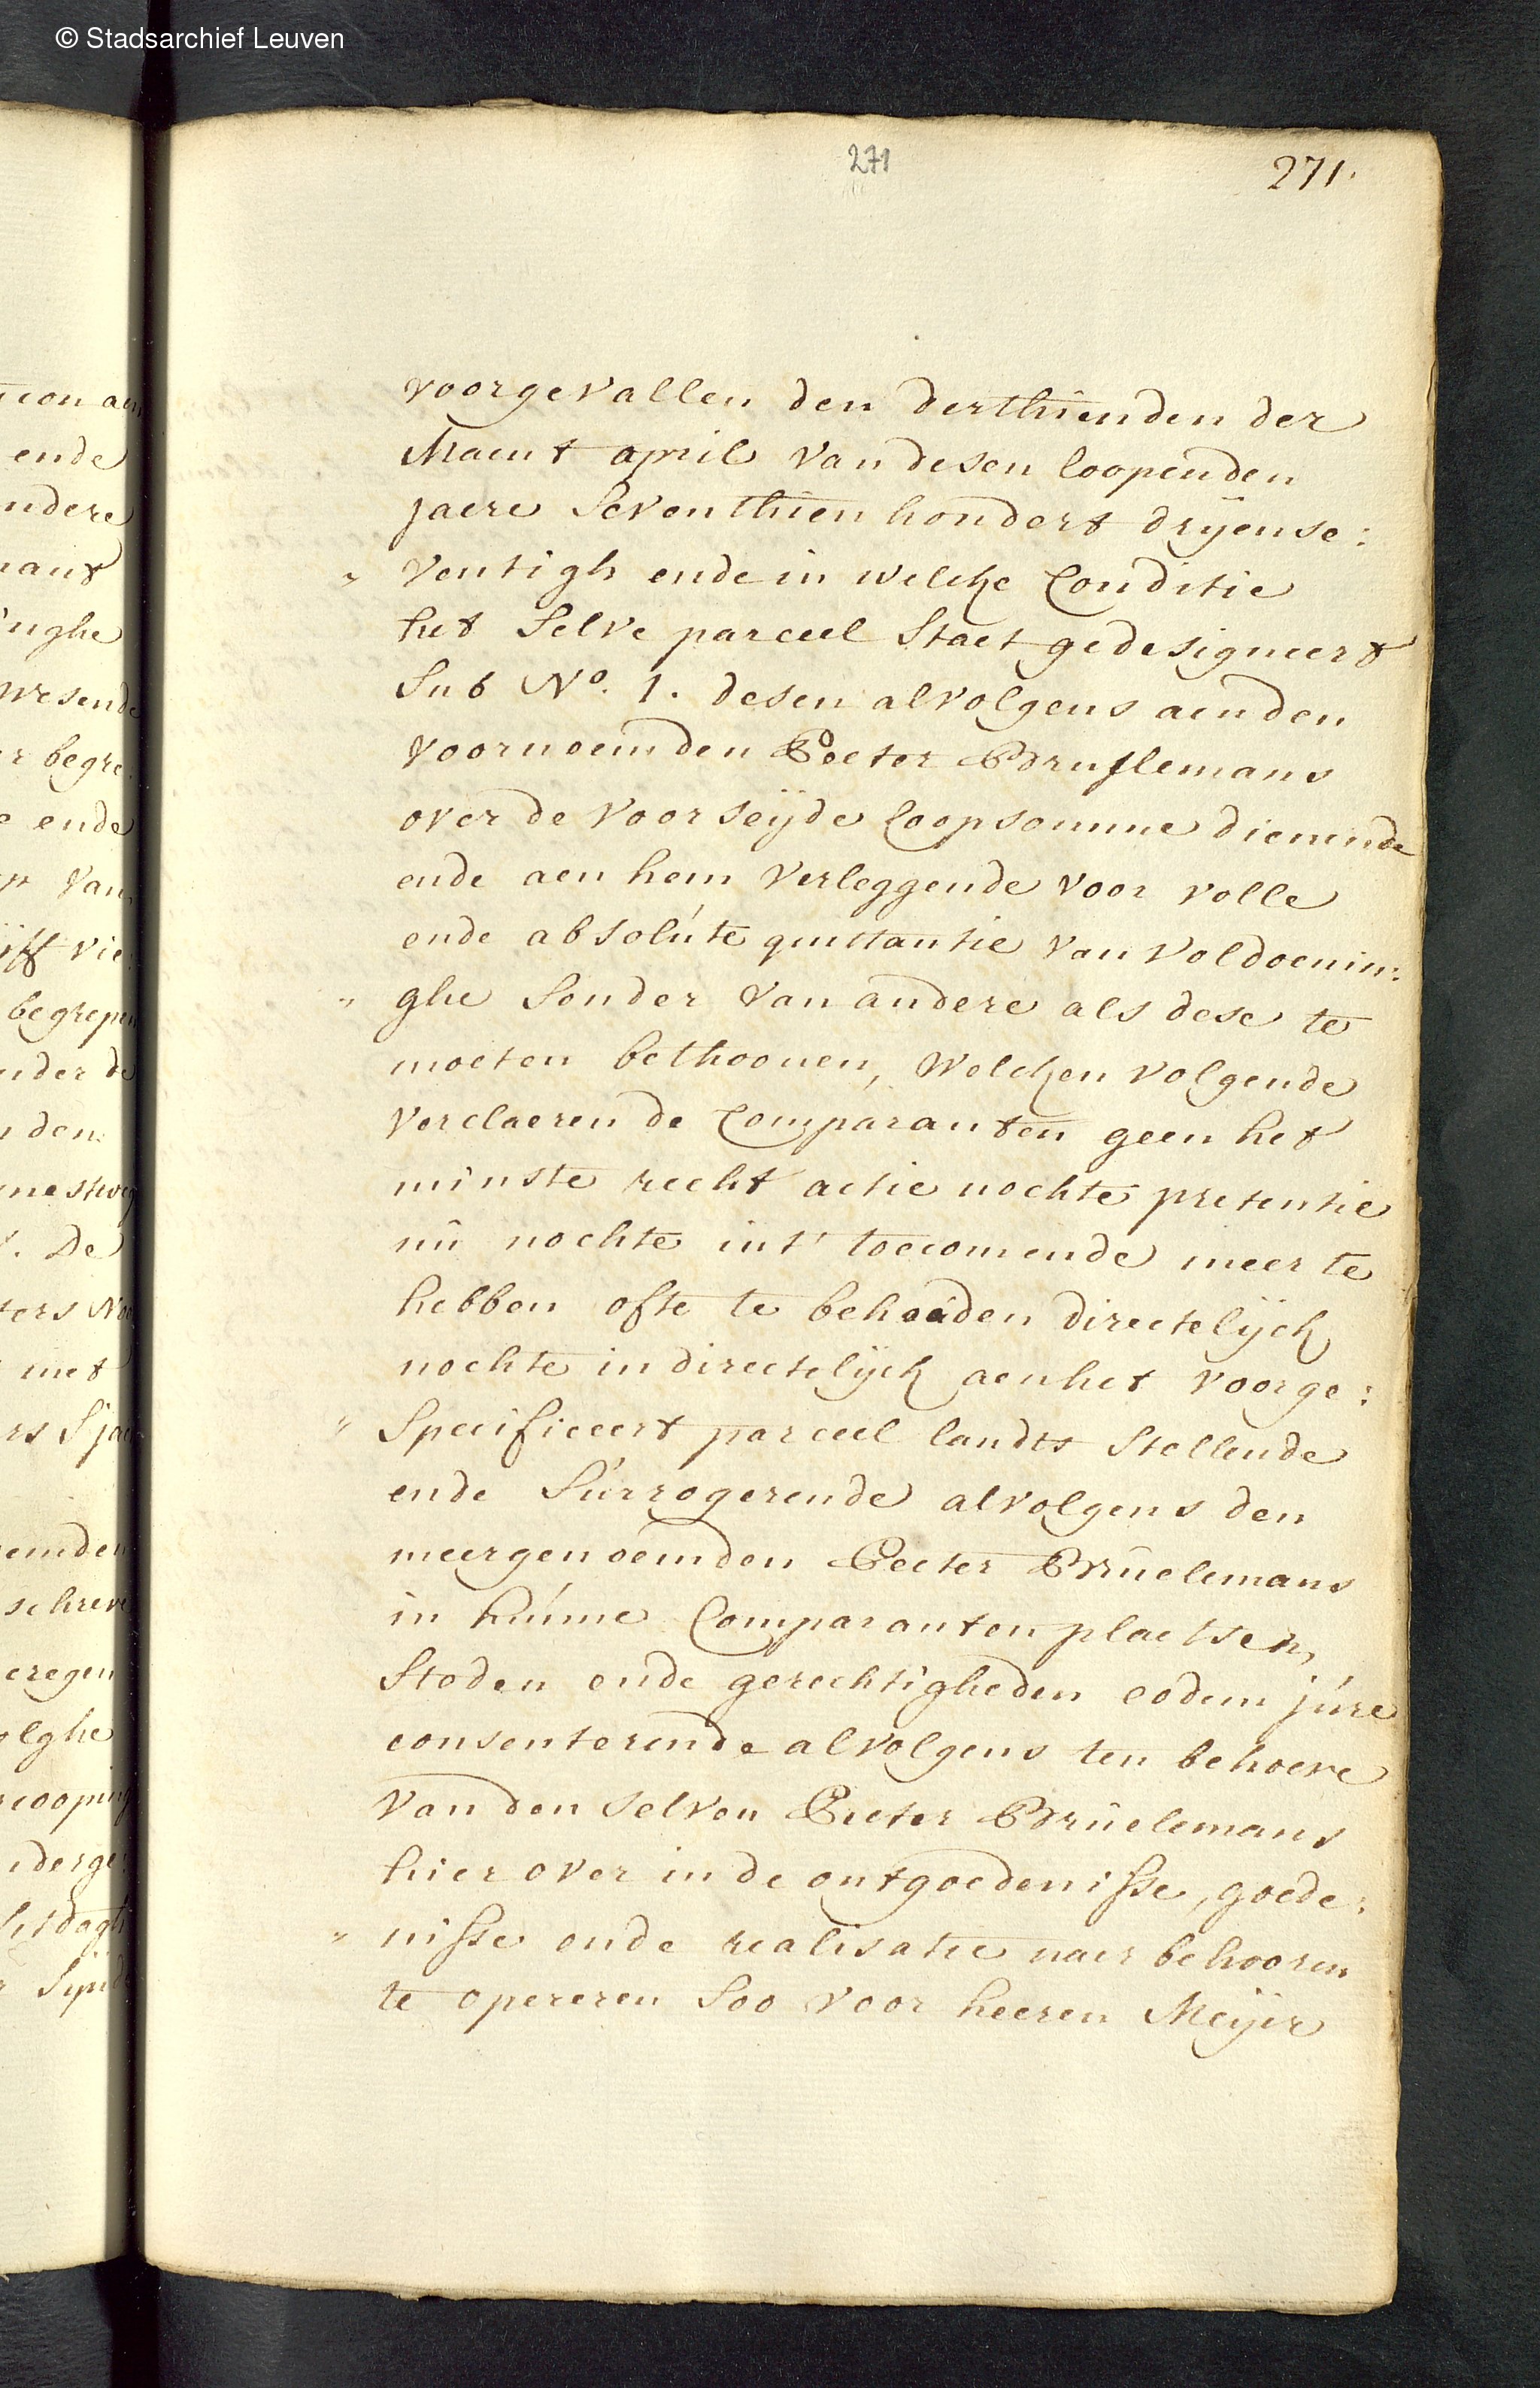 © Stadsarchief Leuven
271
271.
voorgevallen den derthienden der
Maent april van desen loopenden
jaere Seventhien hondert drijense:
" ventigh ende in welcke Conditie
het Selve parceel Staet gedesigneert
Sub N.º 1. desen alvolgens aen den
voornoemden Peeter
over de voorseijde Coopsomme dienende
ende aen hem verleggende voor volle
ende absolúte quittantie van voldoenin:
" ghe Sonder van andere als dese te
moeten bethoonen, welcken volgende
verclaeren de Comparanten geen het
minste recht actie nochte pretentie
nú nochte int' toecomende meer te
hebben ofte te behouden directelijck
nochte indirectelijck aen het voorge:
" Specificeert parceel landts Stellende
ende Súrrogerende alvolgens den
meergenoemden Peeter Brúelemans
in húnne Comparanten plaetsen,
Steden ende gerechtigheden eodem júre
consenterende alvolgens ten behoeve
van den selven Peeter Brúelemans
hier over in de ontgoedenisse, goede:
" nisse ende realisatie naer behooren
te opereren Soo voor heeren Meijer
ende
ndere
inghe
wesende
r begre:
e ende
van
begrepen
nder de
den
De
met